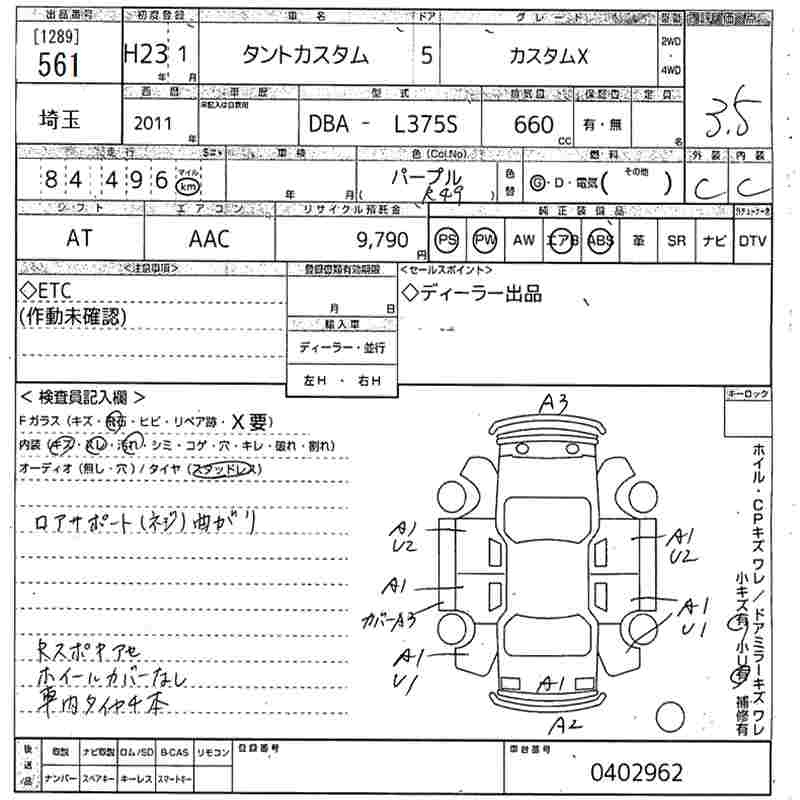 出品番号 初度登録 車名 ドア グレード 駆動 評価点
[1289]
561
H23 1 年 月
タントカスタム 5 カスタムX
2WD・4WD
3.5
西暦 車歴 型式 排気量 保証書 定員
未記入は自家用
埼玉 2011 年 DBA - L375S 660 CC 有・無 名
走行 車検 色(Col.No) 燃料 外装 内装
84,496 マイル km 年 月 パープル ( R49 ) 色替 G・D・電気( その他 ) C C
シフト エアコン リサイクル預託金 純正装備品
AT AAC 9,790 円 PS PW AW エアB ABS 革 SR ナビ DTV
<注意事項> 登録書類有効期限 <セールスポイント>
◇ETC
(作動未確認)
月 日
◇ディーラー出品
輸入車
ディーラー・並行
左H ・ 右H
< 検査員記入欄 >
キーロック
Fガラス(キズ・飛石・ヒビ・リペア跡・X要)
内装(キズ・スレ・汚れ・シミ・コゲ・穴・キレ・破れ・割れ)
オーディオ(無し・穴)/タイヤ(スタッドレス)
ロアサポート(ネジ)曲がり
Rスポキアセ
ホイールカバーなし
車内タイヤ4本
A3
A1
U2
A1
U2
A1
カバーA3
A1
U1
A1
U1
A1
A2
ホイル・CPキズワレ/ドアミラーキズワレ
小キズ有 小U有 補修有
後送品 取説 ナビ取説 ロム/SD B-CAS リモコン 登録番号 車台番号
ナンバー スペアキー キーレス スマートキー
0402962